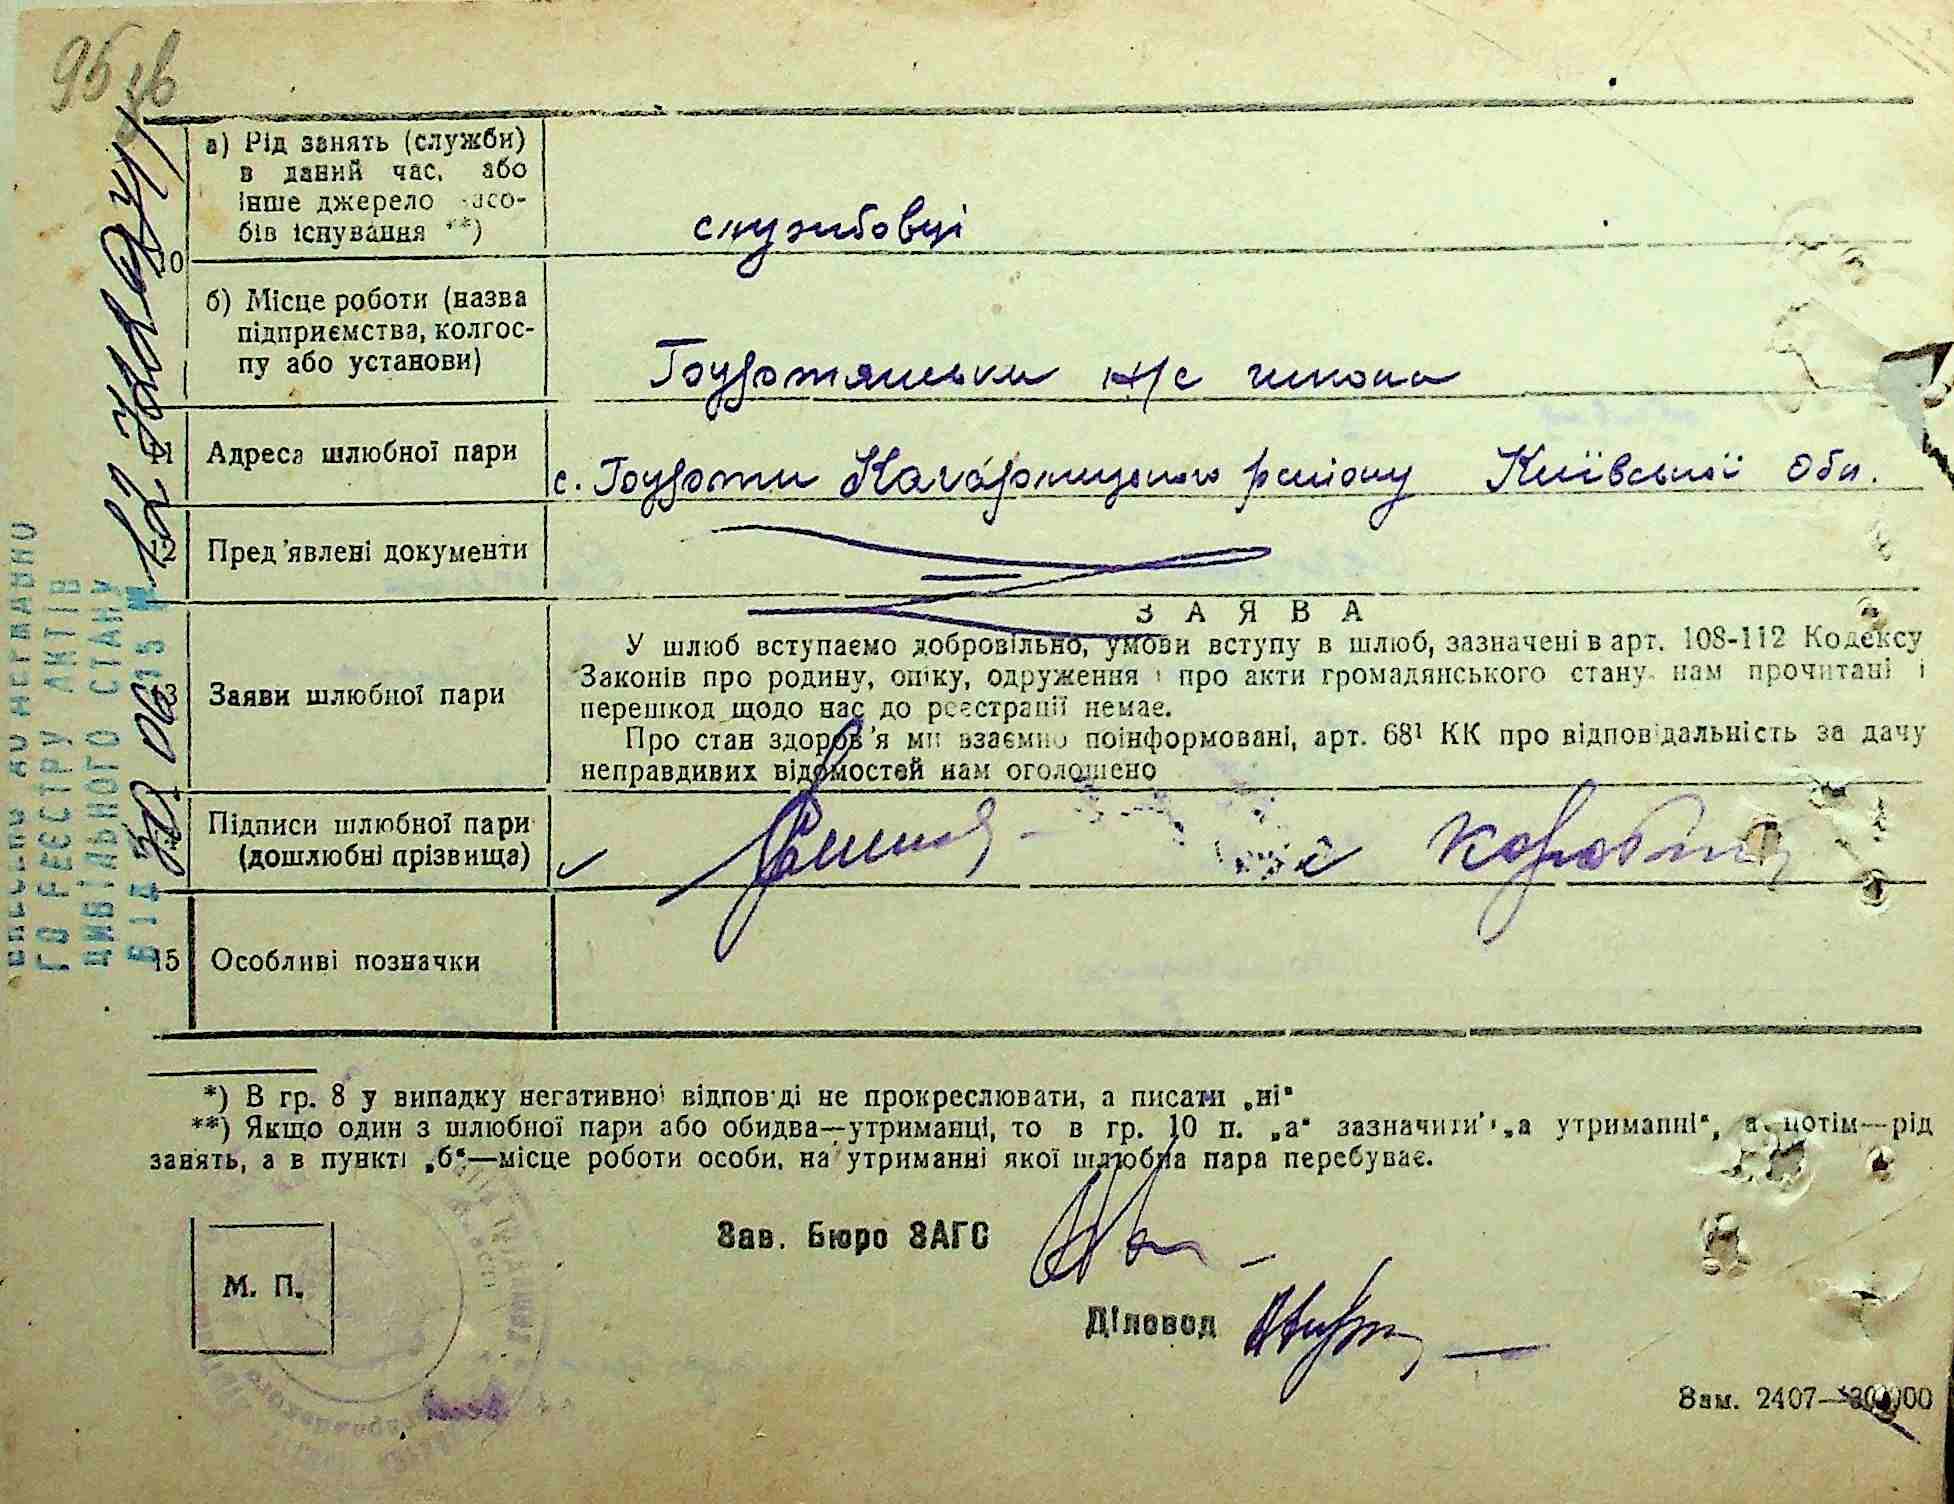 96 зв
а) Рід занять (служби)
в даний час, або
інше джерело засо-
бів існування **)
службовці
10
б) Місце роботи (назва
підприємства, колгос-
пу або установи)
н/с школа
11 Адреса шлюбної пари
с. Кагарлицького району Київської Обл.
12 Пред'явлені документи
ЗАЯВА
13 Заяви шлюбної пари
У шлюб вступаємо добровільно, умови вступу в шлюб, зазначені в арт. 108-112 Кодексу
Законів про родину, опіку, одруження і про акти громадянського стану нам прочитані і
перешкод щодо нас до реєстрації немає.
Про стан здоров'я ми взаємно поінформовані, арт. 68¹ КК про відповідальність за дачу
неправдивих відомостей нам оголошено
Підписи шлюбної пари
(дошлюбні прізвища)
15 Особливі позначки
*) В гр. 8 у випадку негативної відповіді не прокреслювати, а писати „ні“
**) Якщо один з шлюбної пари або обидва—утриманці, то в гр. 10 п. „а“ зазначити „а утриманні“, а потім—рід
занять, а в пункті „б“—місце роботи особи, на утриманні якої шлюбна пара перебуває.
Зав. Бюро ЗАГС
М. П.
Діловод
Зам. 2407—
ГО РЕЄСТРУ АКТІВ
ЦИВІЛЬНОГО СТАНУ
ВІД